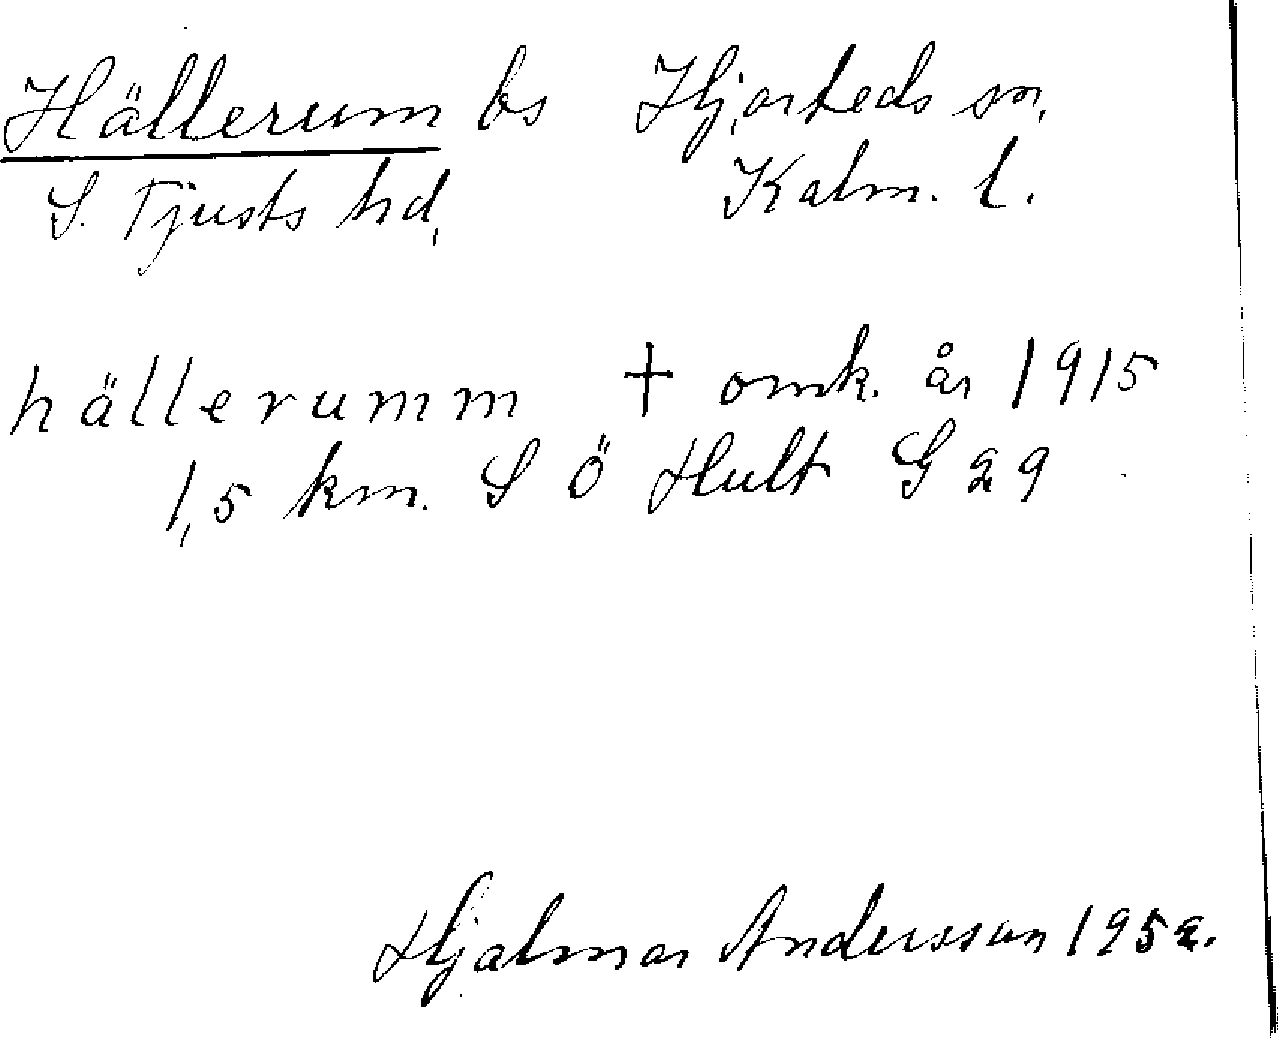 Hällerum bs Hjorteds sn.
S. Tjusts hd. Kalm. l.
hällerumm † omk. år 1915
1,5 km. S Ö Hult G 29
Hjalmar Andersson 1952.